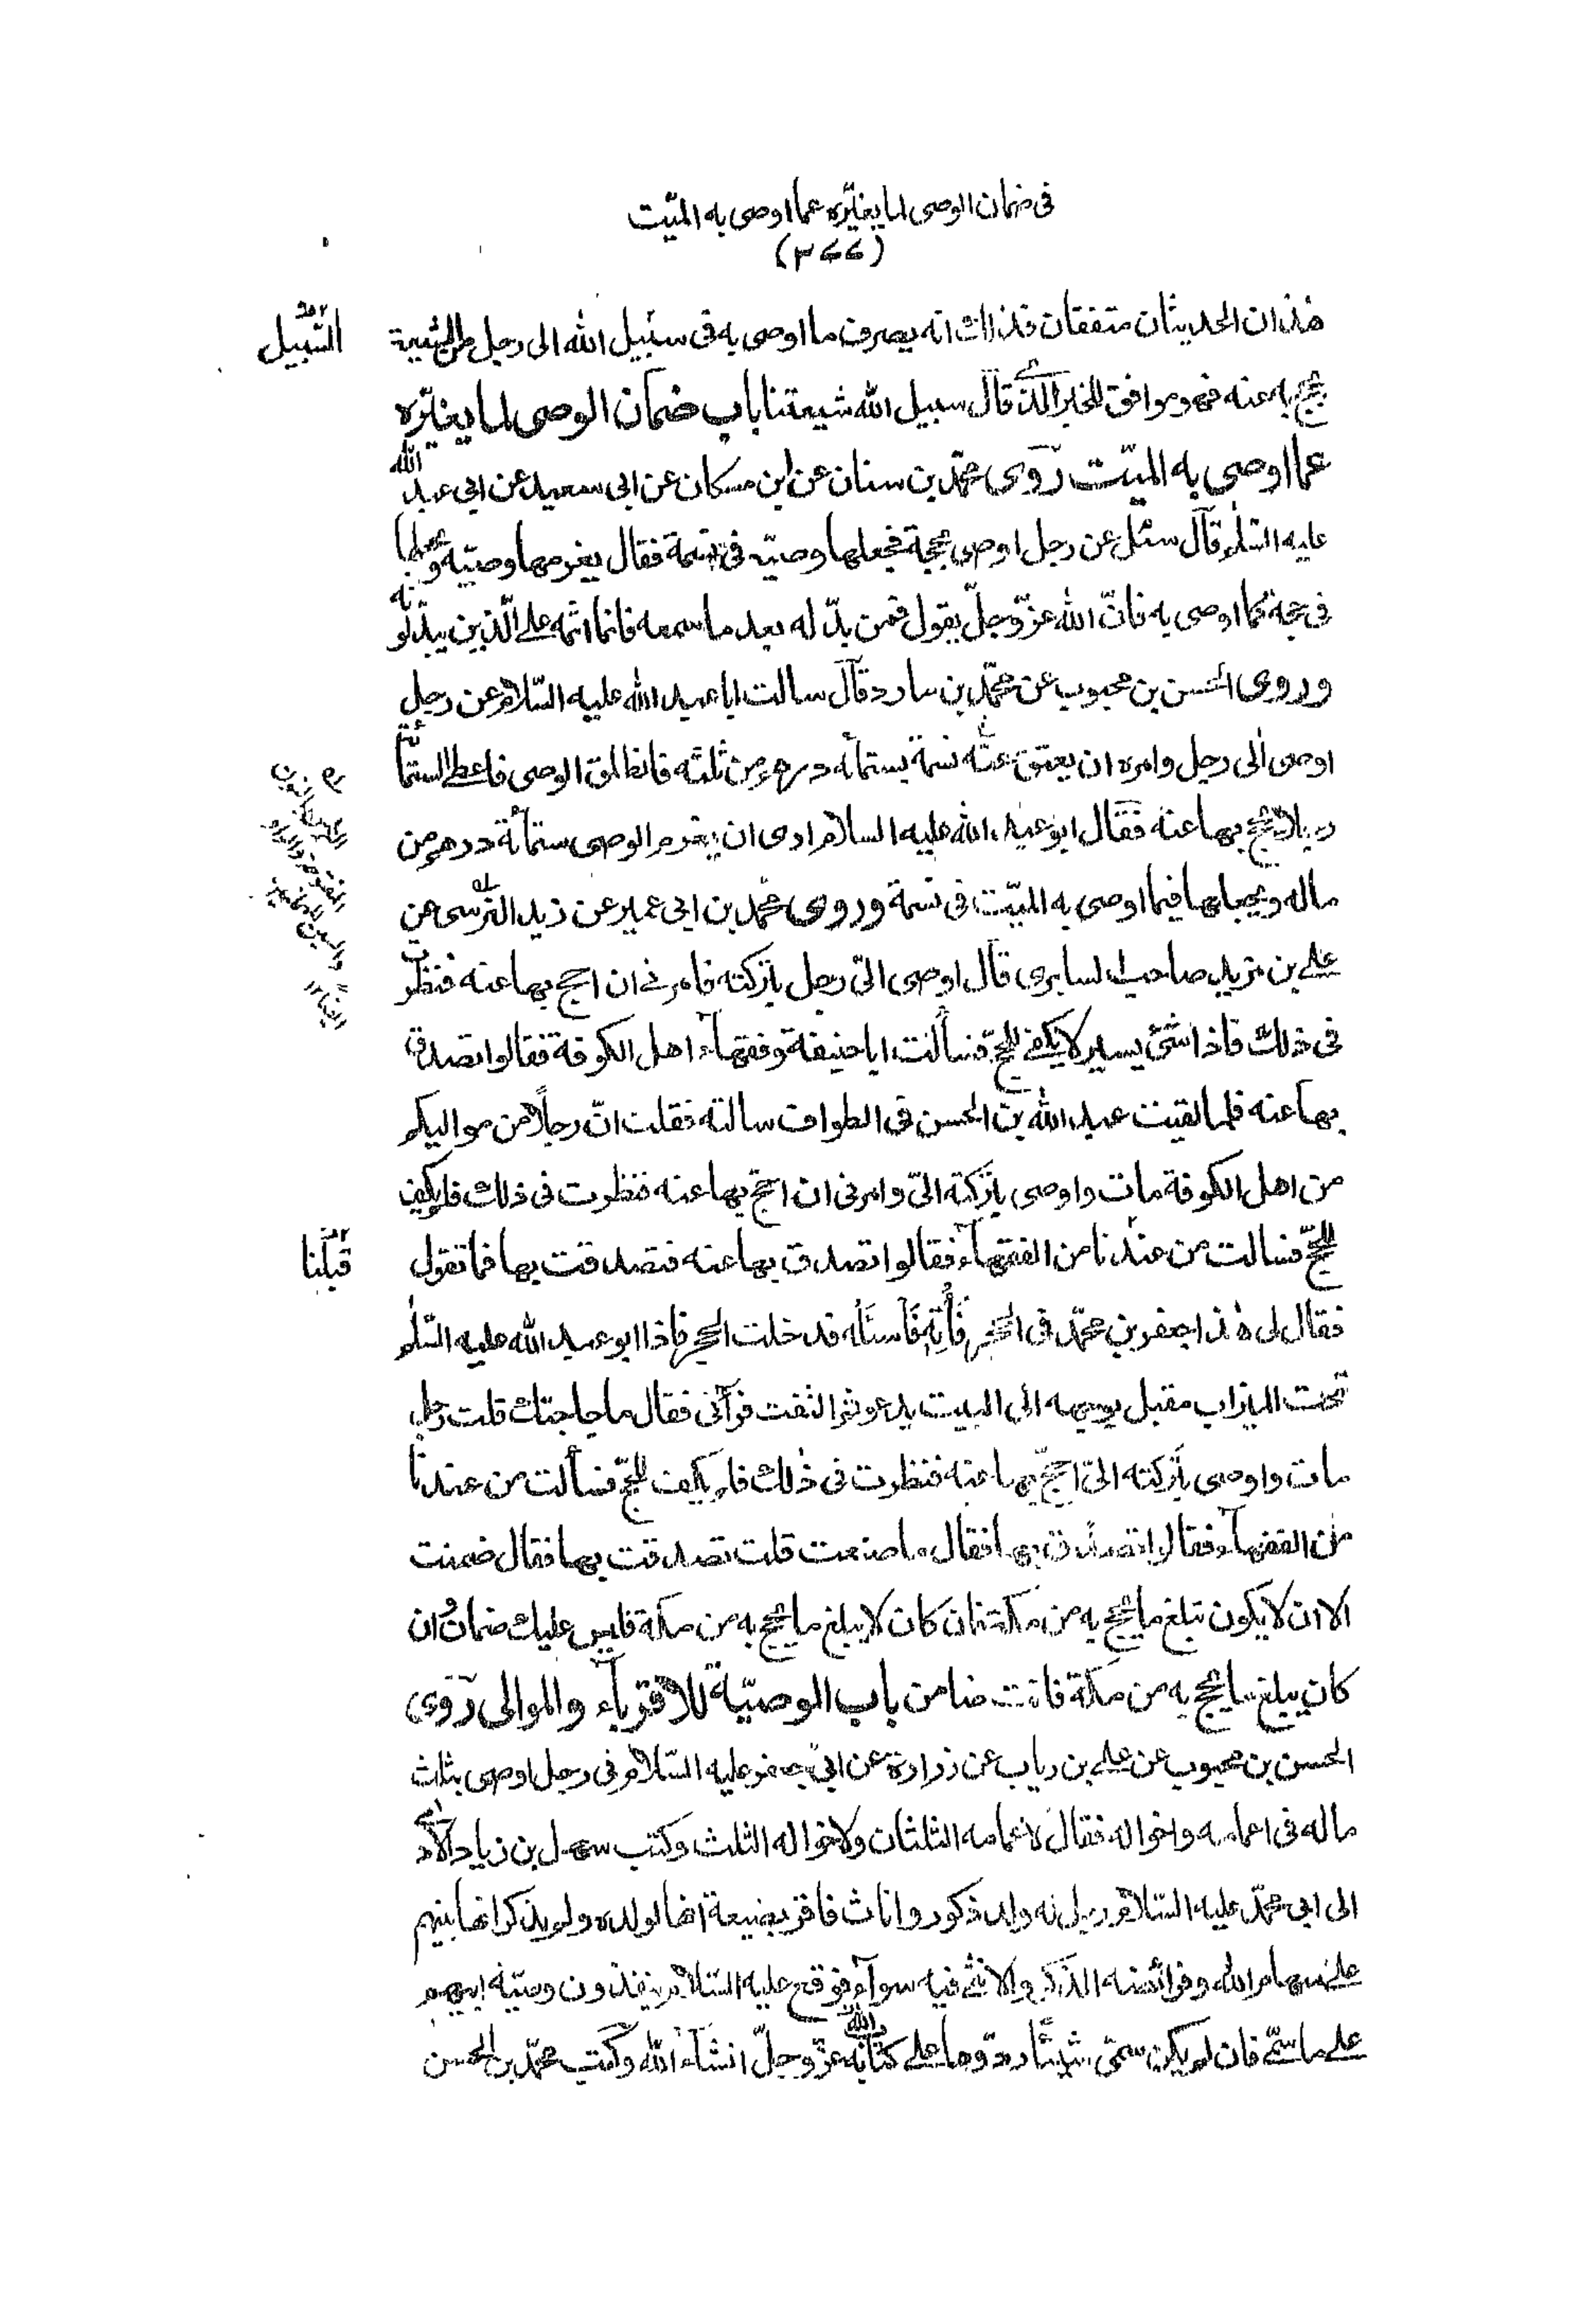 فى ضمان الوصى لما يغيّره عما اوصى به الميّت
(٣٦٦)
هذان الحديثان متفقان فذلك انه يصرف ما اوصى به فى سبيل الله الى رجل من الشيعة
السّبيل
يحج به عنه فهو موافق للخبر الّذى قال سبيل الله شيعتنا باب ضمان الوصى لما يغيّره
عما اوصى به الميّت روى محمّد بن سنان عن ابن مسكان عن ابى سعيد عن ابى عبد الله
عليه السّلم قال سئل عن رجل اوصى بحجة فجعلها وصيّه فى نسمة فقال يغرمها وصيّه و يجعلها
فى حجة كما اوصى به فانّ الله عزّ وجلّ يقول فمن بدّله بعد ما سمعه فانما اثمه على الّذين يبدّلونه
وروى الحسن بن محبوب عن محمّد بن مارد قال سالت ابا عبد الله عليه السّلام عن رجل
اوصى الى رجل وامره ان يعتق عنه نسمة بستمائه درهم من ثلثه فانطلق الوصى فاعطى الستمائة
رجلا يحج بها عنه فقال ابو عبد الله عليه السلام ارى ان يغرم الوصى ستمائة درهم من
ماله و يجعلها فيما اوصى به الميّت فى نسمة وروى محمّد بن ابى عمير عن زيد النّرسى عن
على بن مزيد صاحب السابرى قال اوصى الىّ رجل بتركته فامرنى ان احج بها عنه فنظرت
فى ذلك فاذا شئ يسير لا يكفى للحجّ فسألت ابا حنيفة وفقهاء اهل الكوفة فقالوا تصدق
بها عنه فلما لقيت عبد الله بن الحسن فى الطواف سالته فقلت انّ رجلًا من مواليكم
من اهل الكوفة مات واوصى بتركته الىّ وامرنى ان احجّ بها عنه فنظرت فى ذلك فلم يكف
للحجّ فسالت من عندنا من الفقهاء فقالوا تصدق بها عنه فتصدقت بها فما تقول
قبلنا
فقال لى هذا جعفر بن محمّد فى الحجر فأته فاسئله قد خلت الحجر فاذا ابو عبد الله عليه السّلم
تحت الميزاب مقبل بوجهه الى البيت يدعو ثم التفت فرآنى فقال ما حاجتك قلت رجل
مات واوصى بتركته الىّ احجّ بها عنه فنظرت فى ذلك فلم يكف للحجّ فسألت من عندنا
من الفقهاء فقالوا تصدّق بها فقال ما صنعت قلت تصدقت بها فقال ضمنت
الا ان لا يكون تبلغ ما يحج به من مكة فان كان لا يبلغ ما يحج به من مكة فليس عليك ضمان وان
كان يبلغ ما يحج به من مكة فانت ضامن باب الوصيّة للاقرباء والموالى روى
الحسن بن محبوب عن على بن رياب عن زرارة عن ابى جعفر عليه السّلام فى رجل اوصى بثلث
ماله فى اعمامه واخواله فقال لاعمامه الثلثان ولاخواله الثلث وكتب سهل بن زياد الآدمى
الى ابى محمّد عليه السّلام رجل له ولد ذكور واناث فاقر بضيعة انها لولده ولم يذكر انها بينهم
على سهام الله وفرائضه الذكر والانثى فيه سواء فوقع عليه السّلام ينفذون وصيّة ابيهم
على ما سمّى فان لم يكن سمّى شيئًا ردّوها على كتاب الله عزّ وجلّ انشاء الله وكتب محمّد بن الحسن